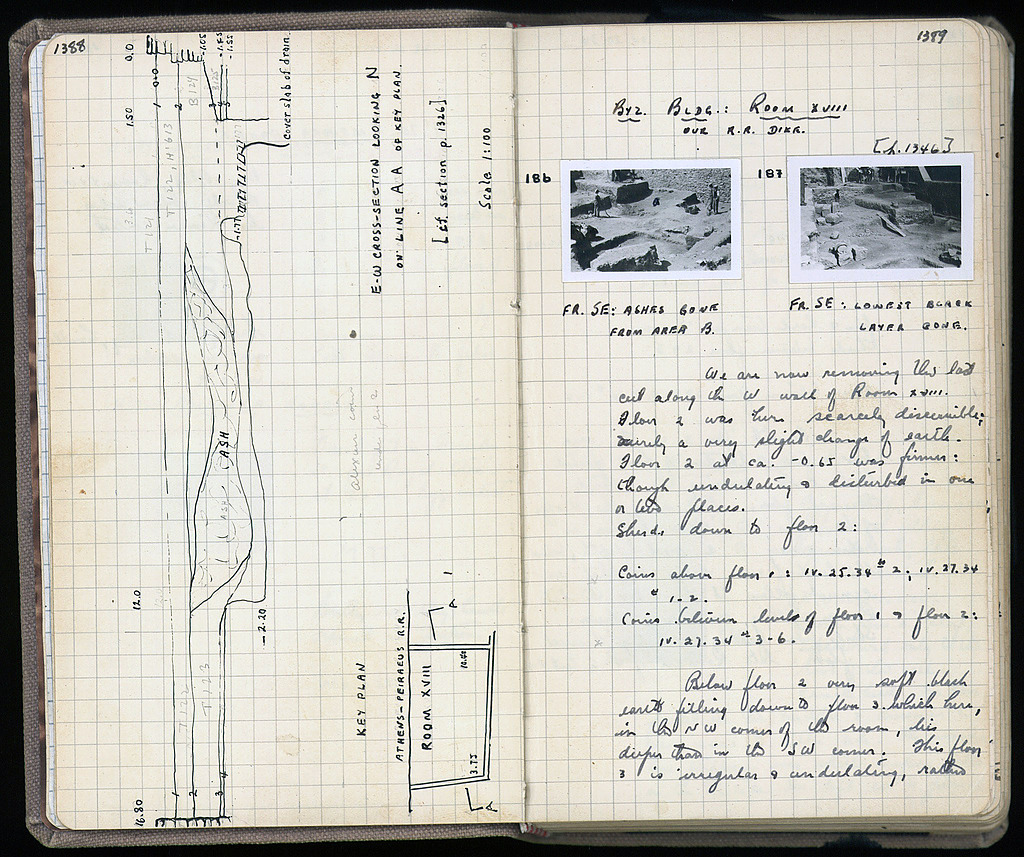 1388
0.0
1.50
12.0
16.80
-1.05
-1.55
B 124
T 122, H' 613
T 121
T 122
T 123
cover slab of drain
-1.77
ASH
ASH
-2.20
E-W CROSS-SECTION LOOKING N
ON LINE A A OF KEY PLAN.
[cf. section p. 1326]
Scale 1:100
KEY PLAN
ATHENS-PEIRAEUS R.R.
ROOM XVIII
10.40
3.75
A
A
1389
BYZ. BLDG.: ROOM XVIII
OUR R.R. DIKR.
[p. 1346]
186
187
FR. SE: ASHES GONE
FROM AREA B.
FR. SE: LOWEST BLACK
LAYER GONE.
We are now removing the last
cut along the W wall of Room XVIII.
Floor 2 was here scarcely discernible;
merely a very slight change of earth.
Floor 2 at ca. -0.65 was firmer:
though undulating & disturbed in one
or two places.
Sherds down to floor 2:
Coins above floor 1: IV.25.34 # 2; IV.27.34
# 1-2.
Coins between levels of floor 1 & floor 2:
IV.27.34 # 3-6.
Below floor 2 very soft black
earth filling down to floor 3 which here,
in the NW corner of the room, lies
deeper than in the SW corner. This floor
3 is irregular & undulating, rather